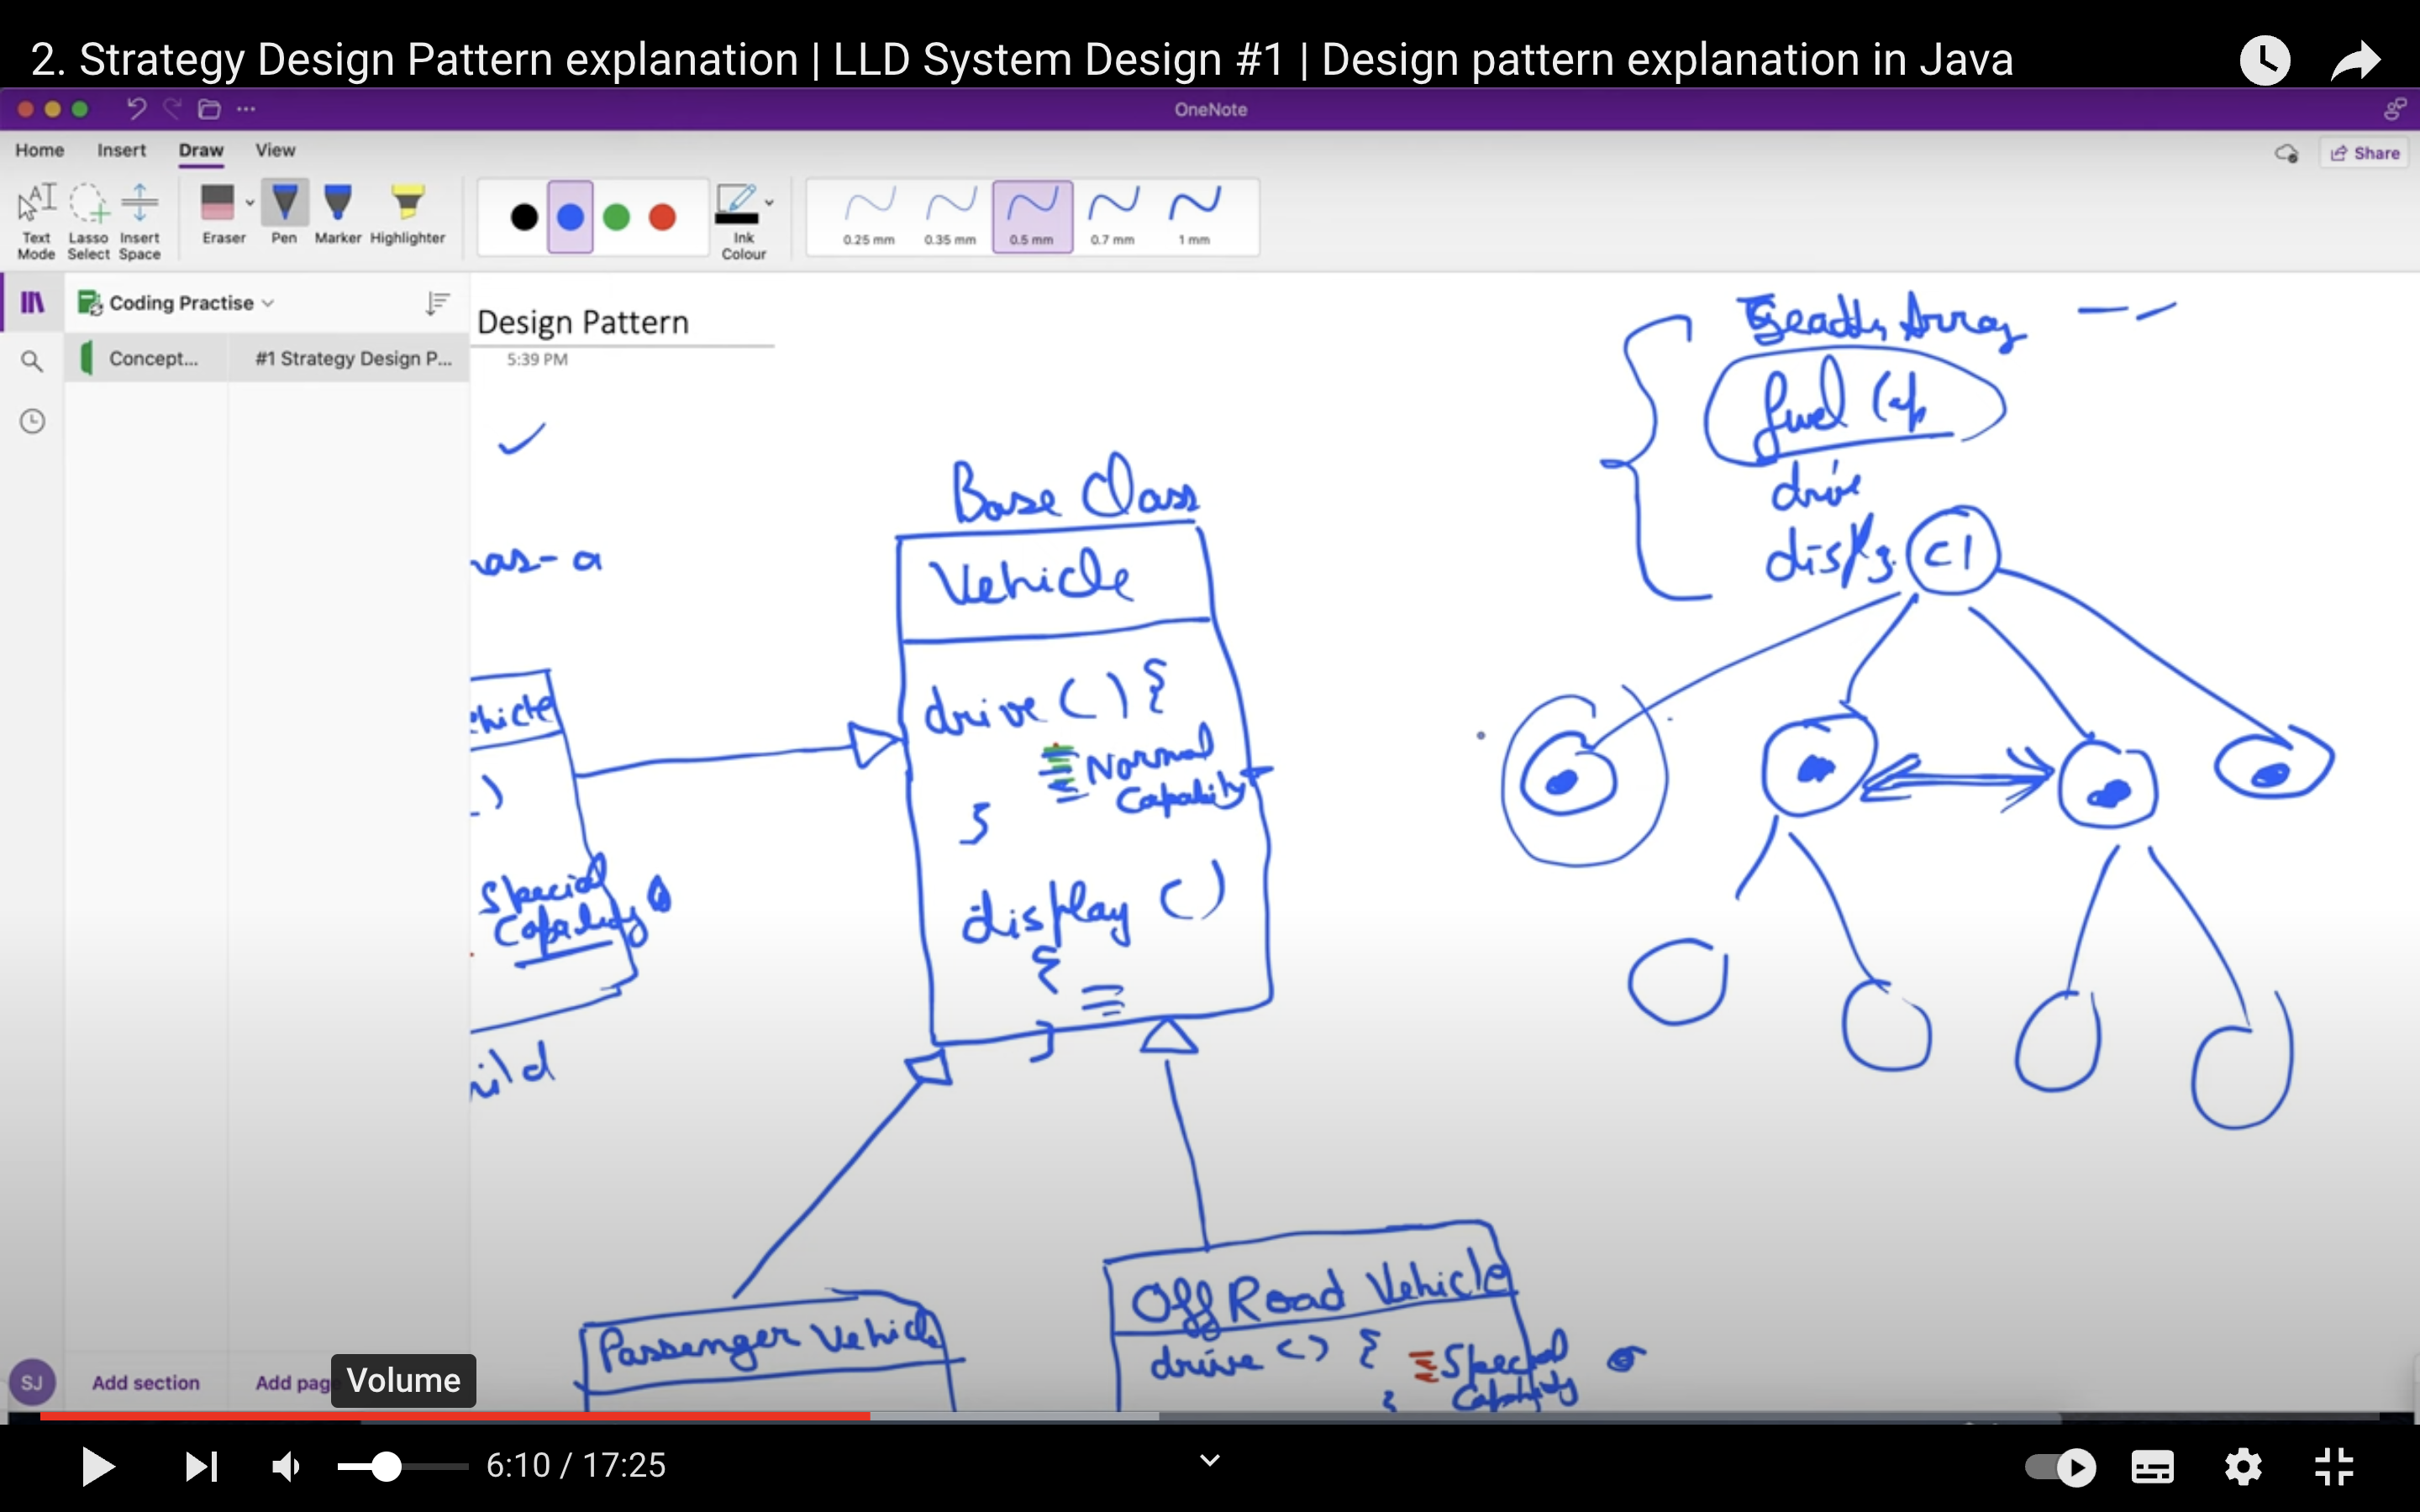 2. Strategy Design Pattern explanation | LLD System Design #1 | Design pattern explanation in Java
OneNote
Home Insert Draw View
Share
Text Mode
Lasso Select
Insert Space
Eraser
Pen
Marker
Highlighter
Ink Colour
0.25 mm
0.35 mm
0.5 mm
0.7 mm
1 mm
Coding Practise
Concept...
#1 Strategy Design P...
Design Pattern
5:39 PM
Array
fuel Cap
drive
C1
Base Class
Vehicle
drive () {
Normal
Capability
}
display ()
{
}
has-a
hicle
)
Special
Capability
ild
Passenger Vehicle
Off Road Vehicle
drive () {
Special
Capability
}
SJ
Add section
Add pag
Volume
6:10 / 17:25